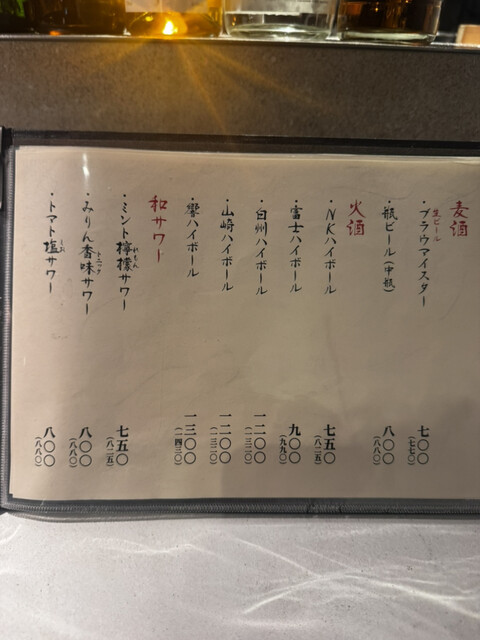 麦酒
・生ビール ブラウマイスター 七〇〇 (七七〇)
・瓶ビール(中瓶) 八〇〇 (八八〇)
火酒
・NKハイボール 七五〇 (八二五)
・富士ハイボール 九〇〇 (九九〇)
・白州ハイボール 一二〇〇 (一三二〇)
・山崎ハイボール 一二〇〇 (一三二〇)
・響ハイボール 一三〇〇 (一四三〇)
和サワー
・ミント檸檬サワー 七五〇 (八二五)
・みりん香味サワー 八〇〇 (八八〇)
・トマト塩サワー 八〇〇 (八八〇)